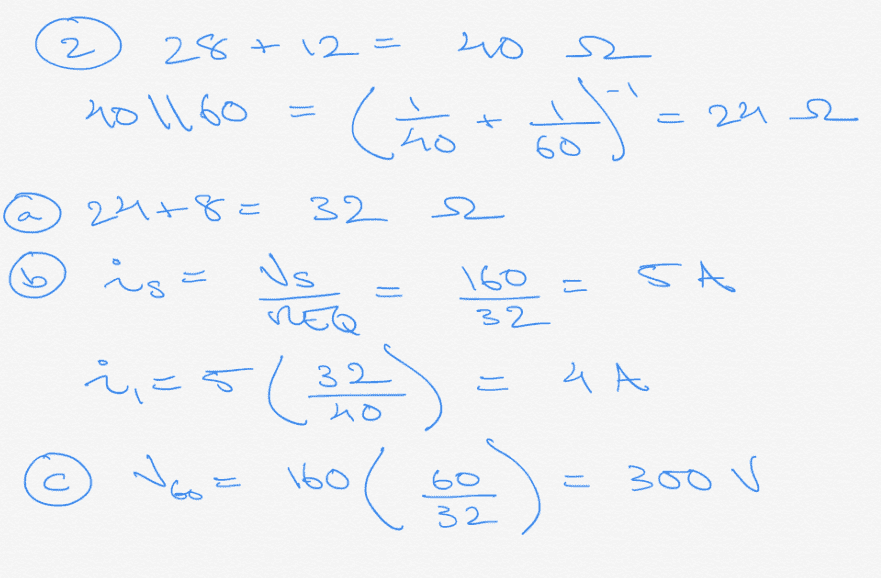 ② 28 + 12 = 40 Ω
40 || 60 = (1/40 + 1/60)^-1 = 24 Ω
ⓐ 24 + 8 = 32 Ω
ⓑ i_s = V_s/R_EQ = 160/32 = 5 A
i_1 = 5 (32/40) = 4 A
ⓒ V_60 = 160 (60/32) = 300 V